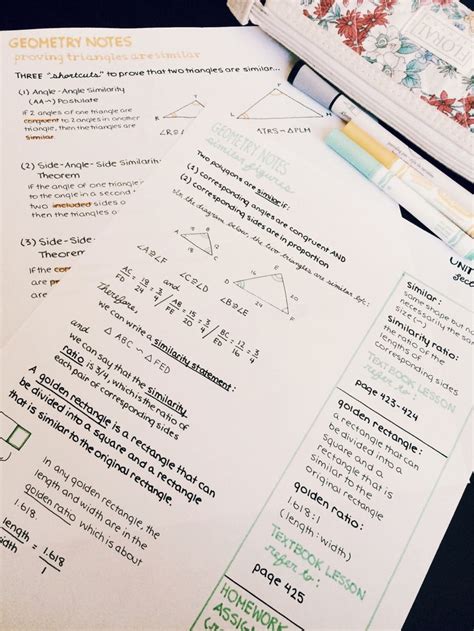 GEOMETRY NOTES
proving triangles are similar
THREE "shortcuts" to prove that two triangles are similar...
(1) Angle-Angle Similarity
(AA~) Postulate
If 2 angles of one triangle are
congruent to 2 angles in another
triangle, then the triangles are
similar
(2) Side-Angle-Side Similarity
Theorem
If the angle of one triangle
to the angle in a second
two included sides
then the triangles
(3) Side-Side-
Theorem
If the
are
GEOMETRY NOTES
similar figures
Two polygons are similar if:
(1) corresponding angles are congruent AND
(2) corresponding sides are in proportion
In the diagram below, the two triangles are similar
∠A≅∠F ∠C≅∠D ∠B≅∠E
AC/FD = 18/24 = 3/4 / AB/FE = 15/20 = 3/4 / BC/ED = 12/16 = 3/4
Therefore,
we can write a similarity statement:
△ABC ~ △FED
and
we can say that the similarity
ratio is 3/4, which is the ratio of
each pair of corresponding sides
A golden rectangle is a rectangle that can
be divided into a square and a rectangle
that is similar to the original rectangle.
In any golden rectangle, the
length and width are in the
golden ratio which is about
length/width = 1.618/1
UNIT
similar:
same shape but no
necessarily the same
size (~)
similarity ratio:
the ratio of the
lengths of
corresponding sides
TEXTBOOK LESSON
refer to:
page 423-424
golden rectangle:
a rectangle that can
be divided into a
square and a
rectangle that is
similar to the
original rectangle
golden ratio:
1.618:1
(length:width)
TEXTBOOK LESSON
refer to:
page 425
HOMEWORK